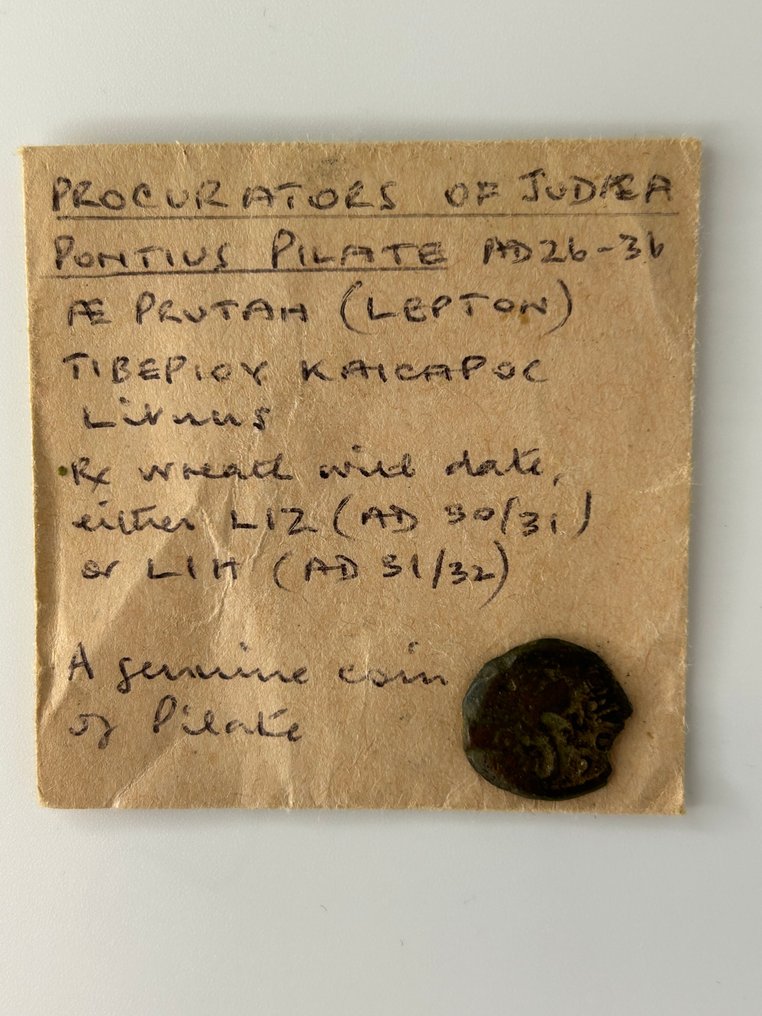 PROCURATORS OF JUDÆA
PONTIUS PILATE AD 26-36
Æ PRUTAH (LEPTON)
TIBEPIOY KAICAPOC
Lituus
Rx wreath with date,
either LIZ (AD 30/31)
or LIH (AD 31/32)
A genuine coin
of Pilate